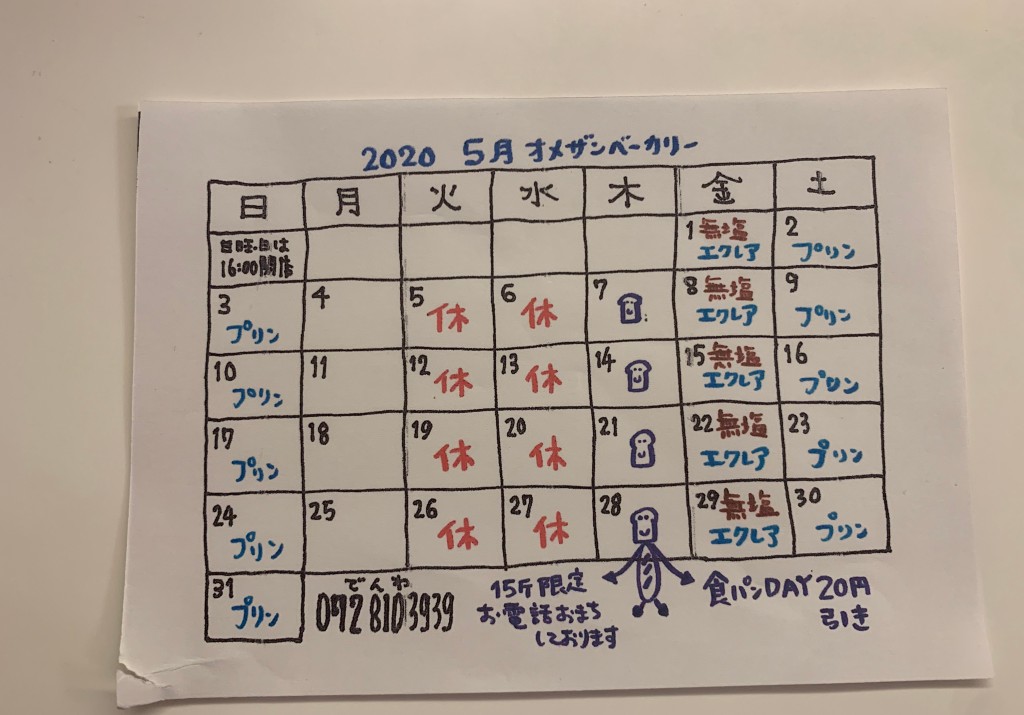 2020 5月 オメザンベーカリー
日 月 火 水 木 金 土
日曜日は
16:00開店
1 無塩 エクレア 2 プリン
3 プリン 4 5 休 6 休 7 8 無塩 エクレア 9 プリン
10 プリン 11 12 休 13 休 14 15 無塩 エクレア 16 プリン
17 プリン 18 19 休 20 休 21 22 無塩 エクレア 23 プリン
24 プリン 25 26 休 27 休 28 29 無塩 エクレア 30 プリン
31 プリン
でんわ
072 810 3939
15斤限定
お電話おまち
しております
食パンDAY 20円
引き